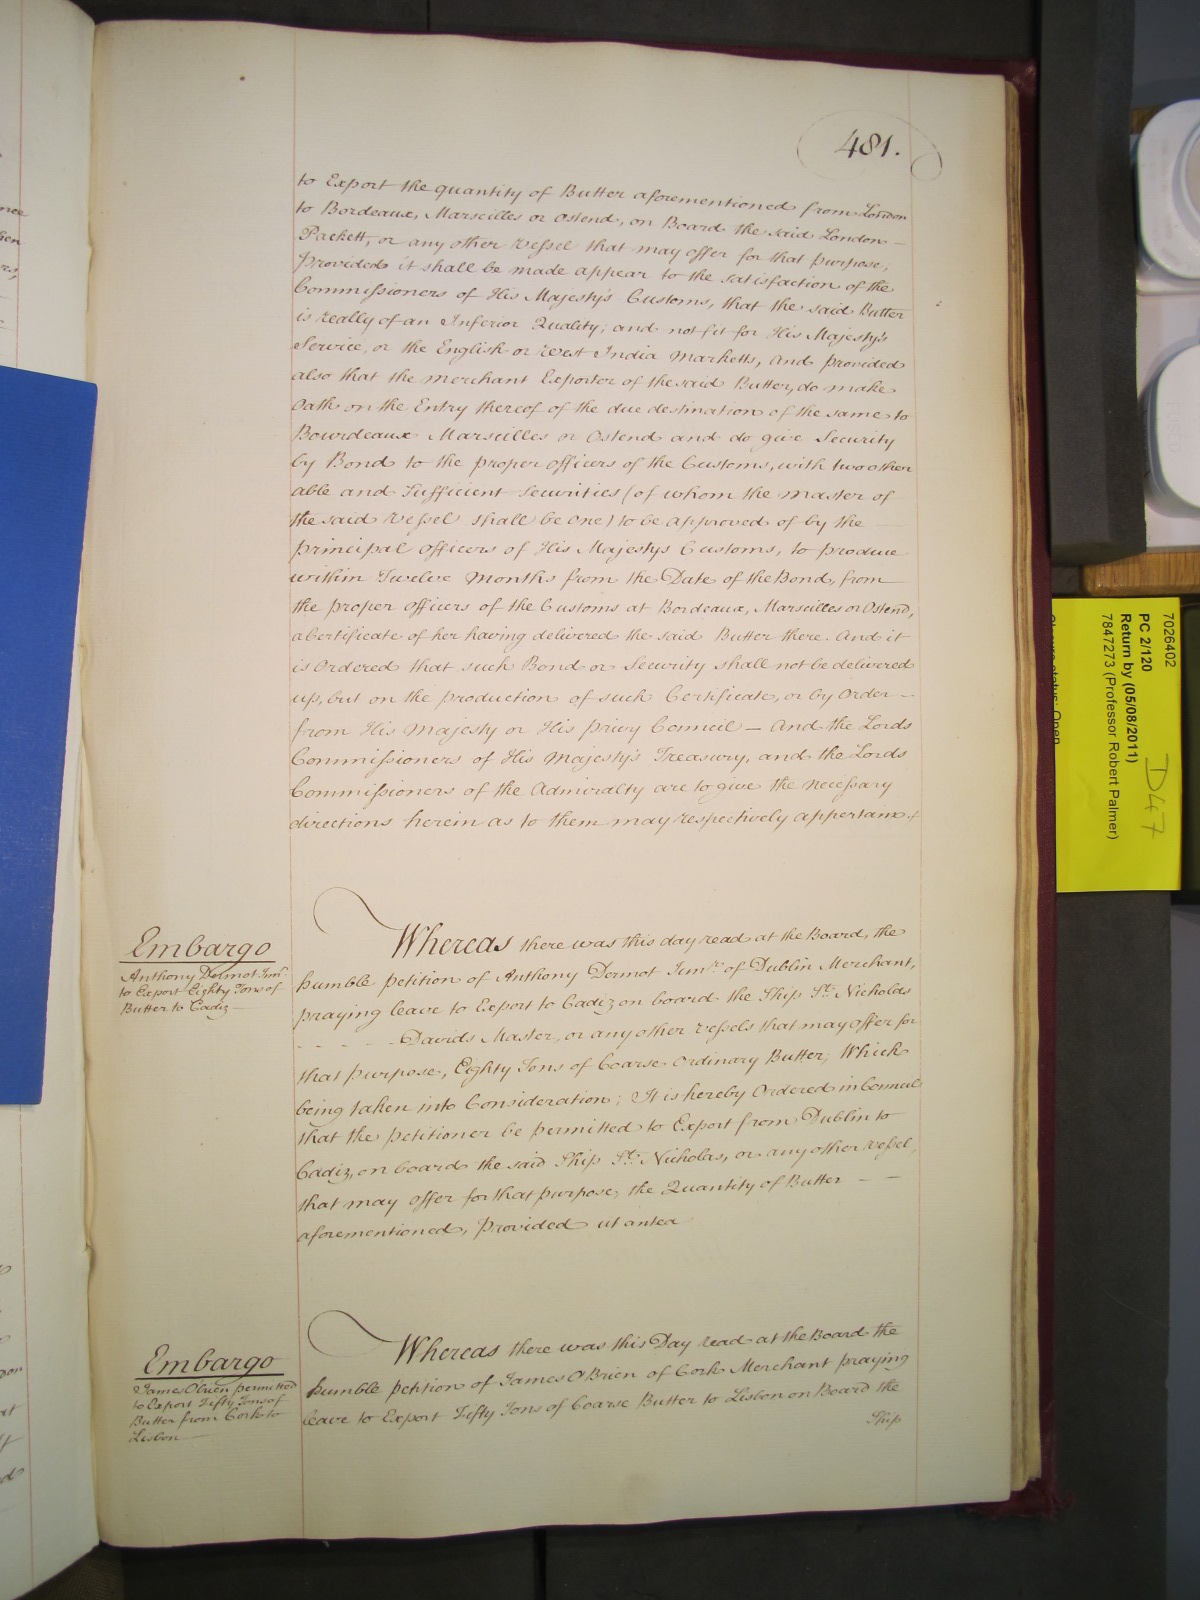 481.
to Export the quantity of Butter aforementioned from London
to Bordeaux, Marseilles or Ostend, on Board the said London
Packett, or any other Vessel that may offer for that purpose;
Provided it shall be made appear to the satisfaction of the
Commissioners of His Majesty's Customs, that the said Butter
is really of an Inferior Quality; and not fit for His Majesty's
Service, or the English or West India Marketts, and provided
also that the Merchant Exporter of the said Butter, do make
Oath on the Entry thereof of the due destination of the same to
Bourdeaux Marseilles or Ostend and do give Security
by Bond to the proper Officers of the Customs, with two other
able and Sufficient Securities (of whom the Master of
the said Vessel shall be one) to be approved of by the
principal Officers of His Majestys Customs, to produce
within Twelve Months from the Date of the Bond, from
the proper Officers of the Customs at Bordeaux, Marseilles or Ostend,
a Certificate of her having delivered the said Butter there. And it
is Ordered that such Bond or Security shall not be delivered
up, but on the production of such Certificate, or by Order
from His Majesty or His Privy Council — And the Lords
Commissioners of His Majesty's Treasury, and the Lords
Commissioners of the Admiralty are to give the necessary
directions herein as to them may respectively appertain.
Embargo
Anthony Dermot Junr.
to Export Eighty Tons of
Butter to Cadiz
Whereas there was this day read at the Board, the
humble petition of Anthony Dermot Junr. of Dublin Merchant,
praying leave to Export to Cadiz on board the Ship St. Nicholas
- - - - Davids Master, or any other Vessels that may offer for
that purpose, Eighty Tons of Coarse Ordinary Butter; Which
being taken into Consideration; It is hereby Ordered in Council
that the petitioner be permitted to Export from Dublin to
Cadiz, on board the said Ship St. Nicholas, or any other Vessel,
that may offer for that purpose, the Quantity of Butter — —
aforementioned, Provided ut antea
Embargo
James Obrien permitted
to Export Fifty Tons of
Butter from Cork to
Lisbon
Whereas there was this Day read at the Board the
humble petition of James O'Brien of Cork Merchant praying
leave to Export Fifty Tons of Coarse Butter to Lisbon on Board the
Ship
7026402
PC 2/120
Return by (05/08/2011)
7847273 (Professor Robert Palmer)
D47